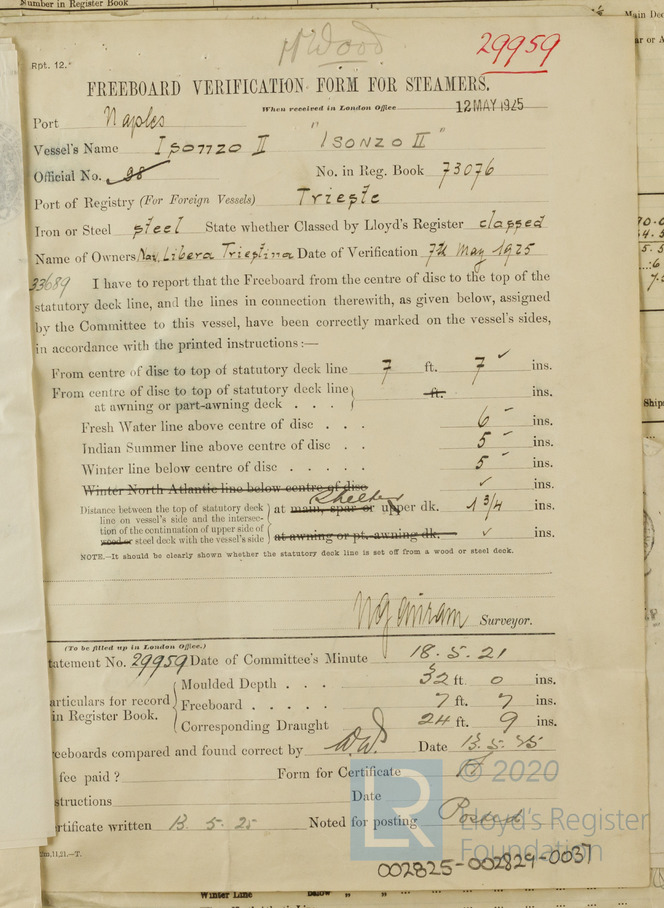 Number in Register Book
Main Dec
Rpt. 12.
H Wood
29959
FREEBOARD VERIFICATION FORM FOR STEAMERS.
When received in London Office 12 MAY 1925
Port Naples
Vessel's Name Isonzo II "ISONZO II"
Official No. 98 No. in Reg. Book 73076
Port of Registry (For Foreign Vessels) Trieste
Iron or Steel steel State whether Classed by Lloyd's Register classed
Name of Owners Nav. Libera Triestina Date of Verification 7th May 1925
33689 I have to report that the Freeboard from the centre of disc to the top of the
statutory deck line, and the lines in connection therewith, as given below, assigned
by the Committee to this vessel, have been correctly marked on the vessel's sides,
in accordance with the printed instructions:—
From centre of disc to top of statutory deck line 7 ft. 7 ✓ ins.
From centre of disc to top of statutory deck line
at awning or part-awning deck . . . ft. ins.
Fresh Water line above centre of disc . . . 6 ins.
Indian Summer line above centre of disc . . 5 ins.
Winter line below centre of disc . . . . . 5 ins.
Winter North Atlantic line below centre of disc ✓ ins.
Shelter
Distance between the top of statutory deck
line on vessel's side and the intersec-
tion of the continuation of upper side of
wood or steel deck with the vessel's side
at main, spar or upper dk. 1 3/4 ins.
at awning or pt. awning dk. ✓ ins.
NOTE.—It should be clearly shown whether the statutory deck line is set off from a wood or steel deck.
Surveyor.
(To be filled up in London Office.)
tatement No. 29959 Date of Committee's Minute 18.5.21
articulars for record
in Register Book.
Moulded Depth . . . 32 ft. 0 ins.
Freeboard . . . . . 7 ft. 7 ins.
Corresponding Draught 24 ft. 9 ins.
reeboards compared and found correct by Date 13.5.25
fee paid ? Form for Certificate
structions Date
rtificate written 13.5.25 Noted for posting Posted
2m,11,21.—T.
LR
© 2020
Lloyd's Register
Foundation
002825-002829-0037
Winter Line below
Ships